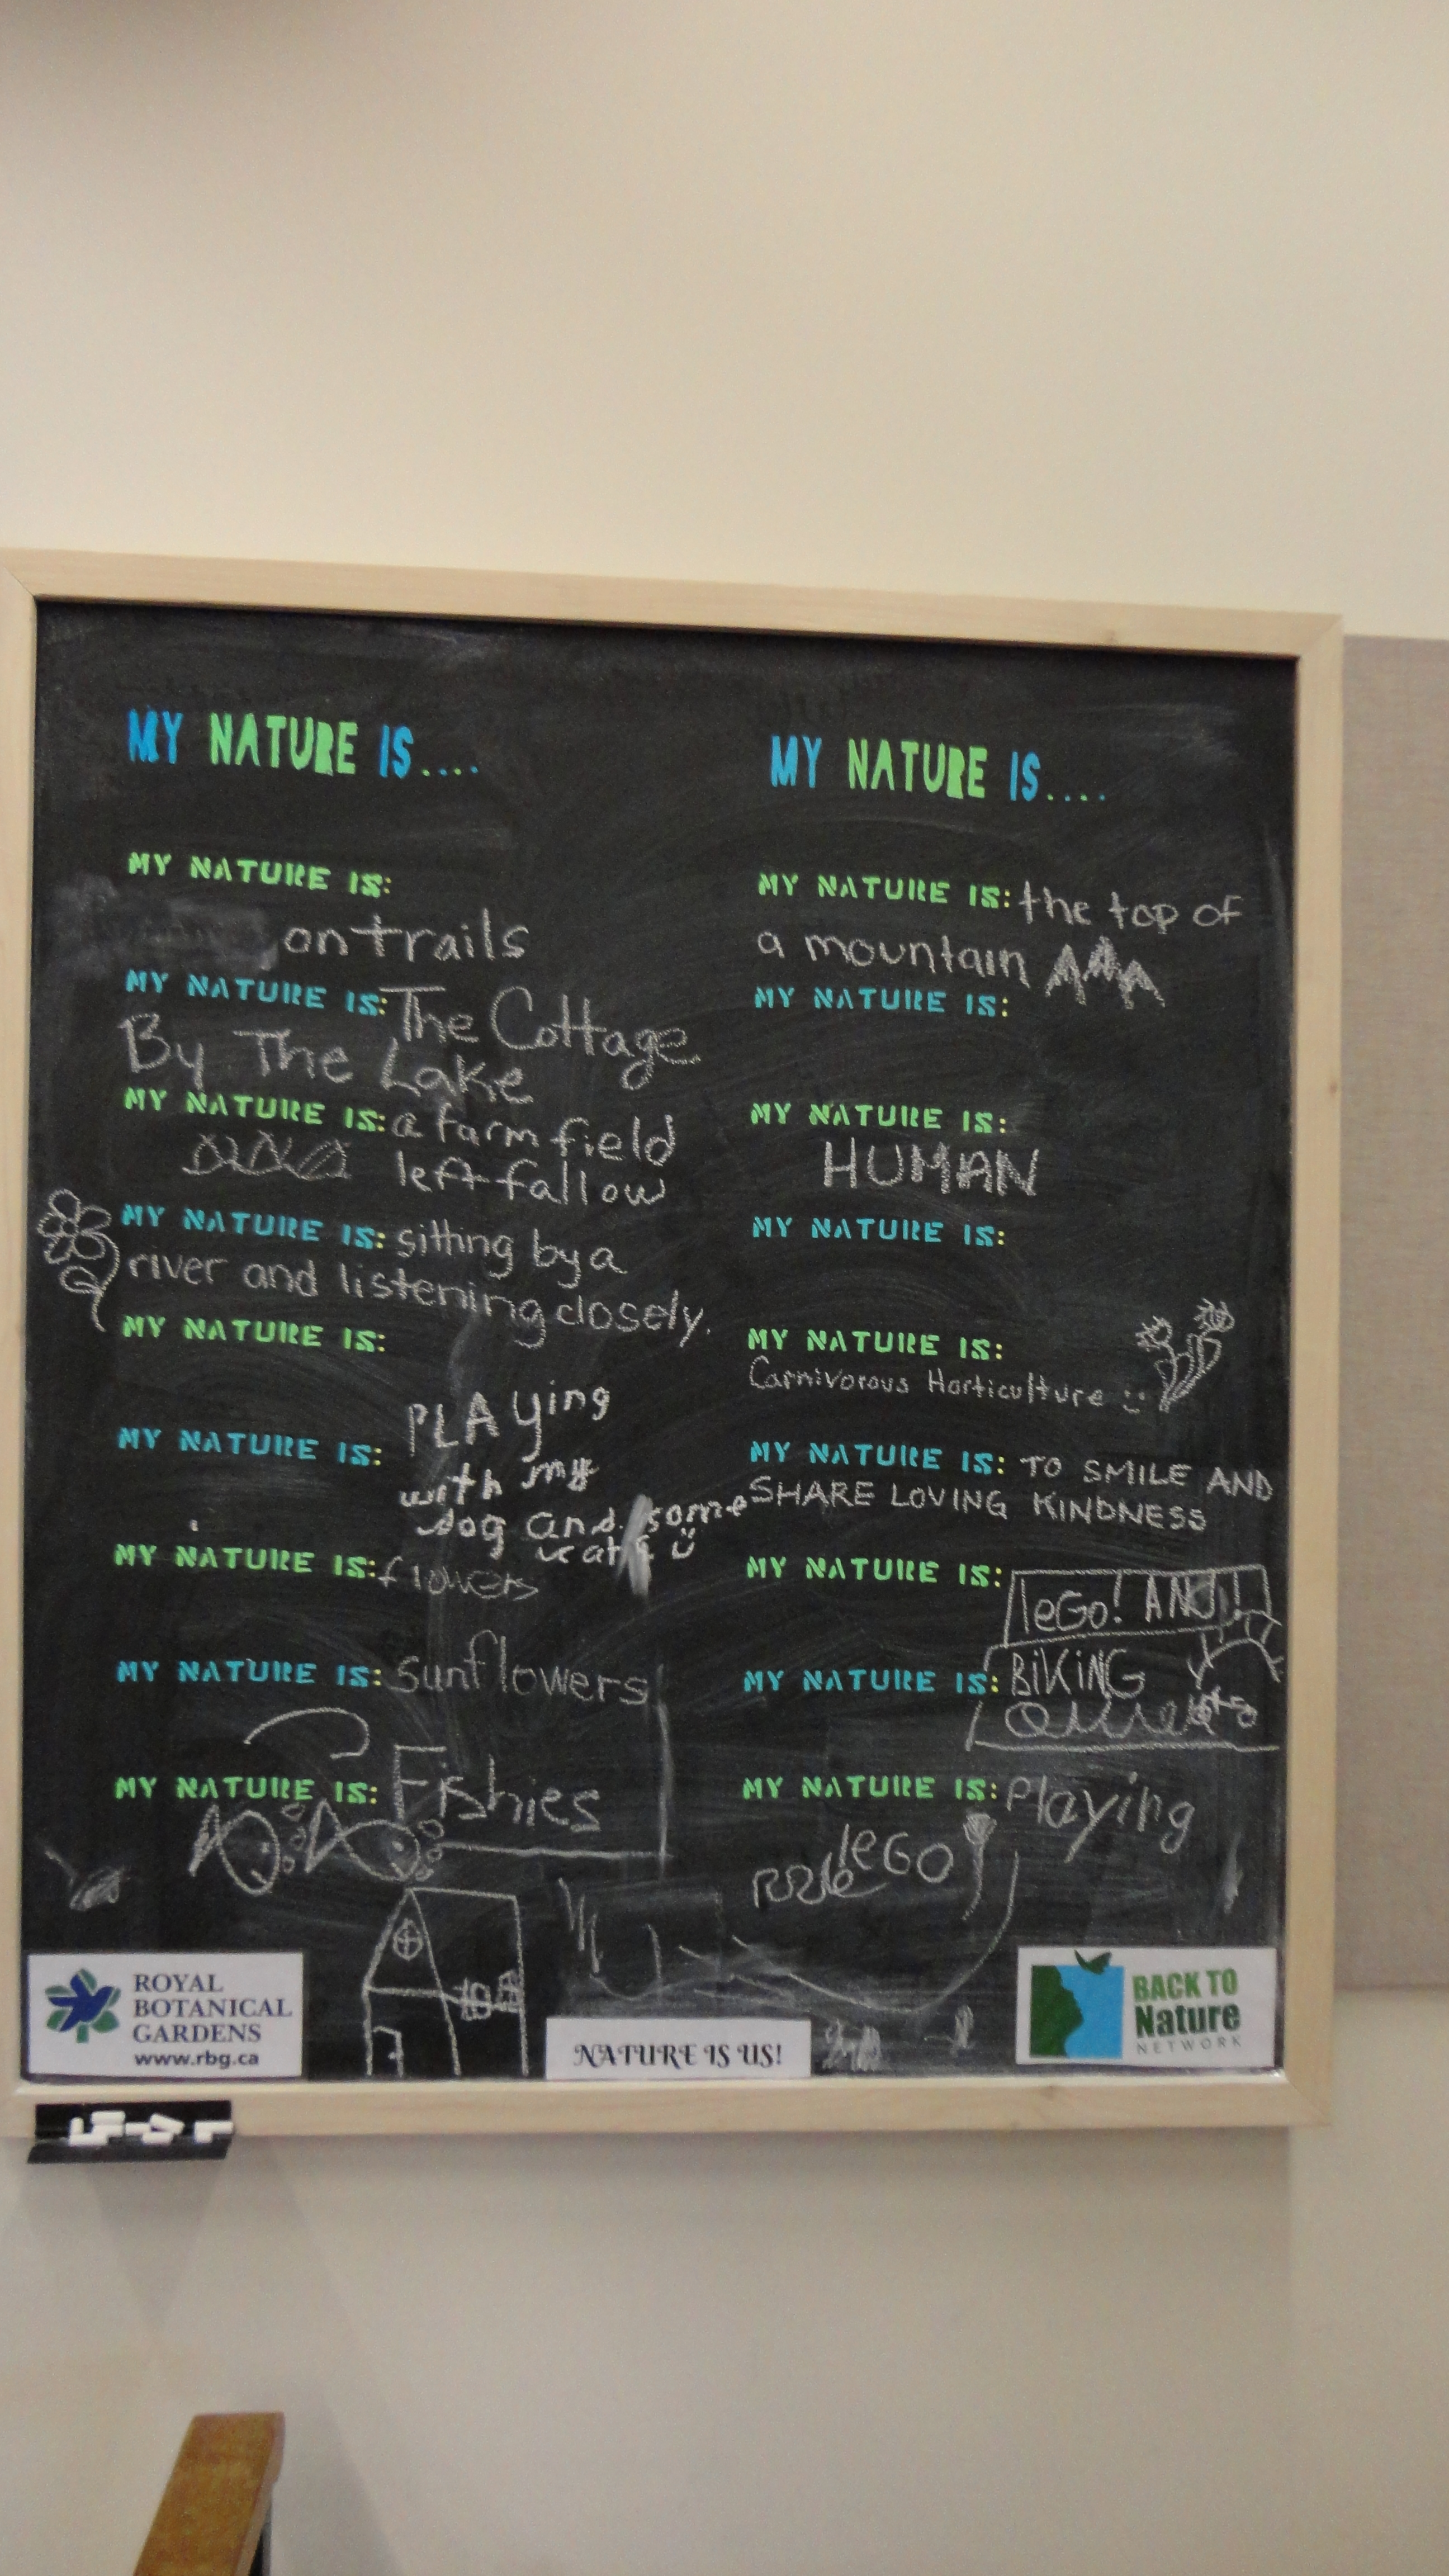 MY NATURE IS....
MY NATURE IS:
on trails
MY NATURE IS: The Cottage
By The Lake
MY NATURE IS: a farm field
left fallow
MY NATURE IS: sitting by a
river and listening closely.
MY NATURE IS:
PLAying
MY NATURE IS:
with my
dog and some
cats
MY NATURE IS: flowers
MY NATURE IS: Sunflowers
MY NATURE IS: Fishies
MY NATURE IS....
MY NATURE IS: the top of
a mountain
MY NATURE IS:
MY NATURE IS:
HUMAN
MY NATURE IS:
MY NATURE IS:
Carnivorous Horticulture
MY NATURE IS: TO SMILE AND
SHARE LOVING KINDNESS
MY NATURE IS:
leGo! AND!
MY NATURE IS: BiKiNG
MY NATURE IS: Playing
leGO
ROYAL
BOTANICAL
GARDENS
www.rbg.ca
NATURE IS US!
BACK TO
Nature
NETWORK